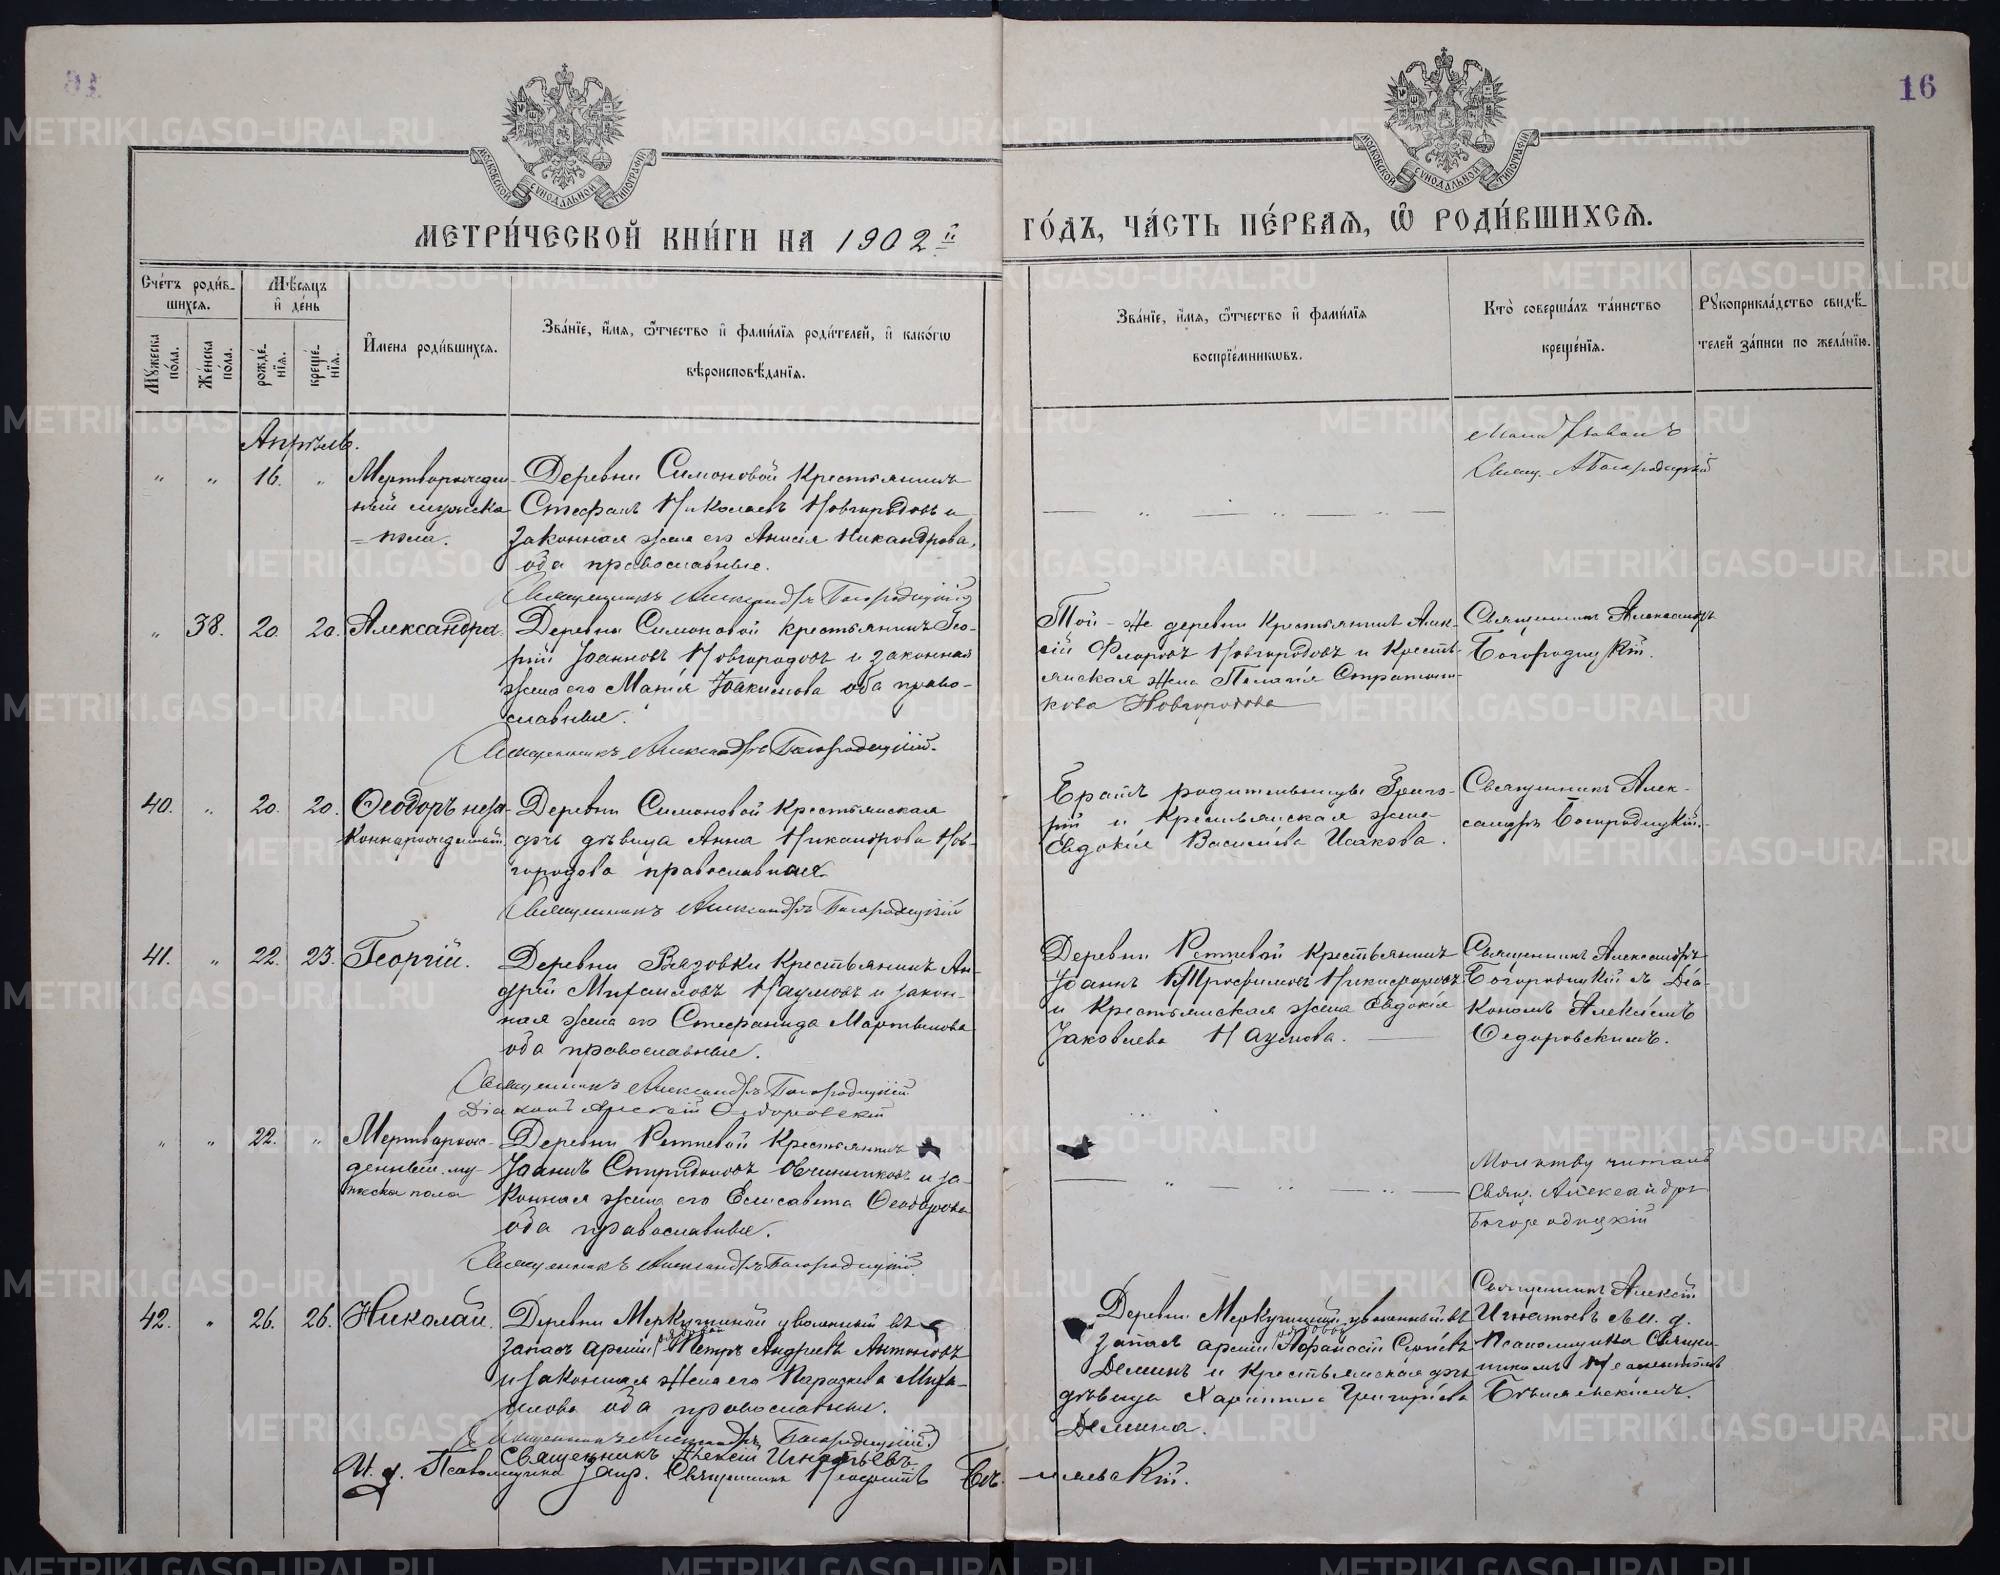 16
МОСКОВСКОЙ СѴНОДАЛЬНОЙ ТИПОГРАФІИ
МОСКОВСКОЙ СѴНОДАЛЬНОЙ ТИПОГРАФІИ
МЕТРИ́ЧЕСКОЙ КНИ́ГИ НА 1902 й
ГО́ДЪ, ЧА́СТЬ ПЕ́РВАЯ, Ѿ РОДИ́ВШИХСЯ.
Сче́тъ роди́в-
шихся.
Мѣ́сяцъ
и де́нь
Мꙋ́жеска
по́ла.
Же́нска
по́ла.
рожде́-
нїя.
креще́-
нїя.
И҆мена роди́вшихся.
Зва́нїе, и҆́мя, ѻ҆́тчество и҆ фами́лїя роди́телей, и҆ како́гѡ
вѣроисповѣ́данїя.
Зва́нїе, и҆́мя, ѻ҆́тчество и҆ фами́лїя
воспрїе́мникѡвъ.
Кто̀ соверша́лъ та́инство
креще́нїя.
Рꙋкоприкла́дство свидѣ́-
телей за́писи по жела́нїю.
Апрѣль.
" " 16. "
Мертворожден-
ный мужска
= пола.
Деревни Симоновой крестьянинъ
Стефанъ Николаевъ Новгородовъ и
законная жена его Анисія Никандрова,
оба православные.
Священникъ Александръ Богородицкій
Свящ. А Богородицкій
" 38. 20. 20. Александра.
Деревни Симоновой крестьянинъ Гео-
ргій Іоанновъ Новгородовъ и законная
жена его Марія Іоакимова оба право-
славные.
Священникъ Александръ Богородицкій.
Той-же деревни крестьянинъ Алек-
сій Флоровъ Новгородовъ и кресть-
янская жена Пелагія Стратони-
кова Новгородова
Священникъ Александръ
Богородицкій.
40. " 20. 20. Ѳеодоръ неза-
коннорожденный
Деревни Симоновой крестьянская
дчь дѣвица Анна Никандрова Нов-
городова православная.
Священникъ Александръ Богородицкій
Братъ родительницы Григо-
рій и крестьянская жена
Евдокія Василіева Исакова.
Священникъ Алек-
сандръ Богородицкій.
41. " 22. 23. Георгій.
Деревни Вязовки крестьянинъ Ан-
дрей Михаиловъ Наумовъ и закон-
ная жена его Стефанида Мартынова
оба православные.
Священникъ Александръ Богородицкій
Діаконъ Алексій Ѳедоровскій
Деревни Реттевой крестьянинъ
Іоаннъ Трофимовъ Никифоровъ
и крестьянская жена Евдокія
Іаковлева Наумова.
Священникъ Александръ
Богородицкій съ Діа-
кономъ Алексіемъ
Ѳедоровскимъ.
" " 22. "
Мертворож-
денный му-
жска пола
Деревни Реттевой крестьянинъ
Іоаннъ Спиридоновъ Овчинниковъ и за-
конная жена его Елисавета Ѳеодорова
оба православные.
Священникъ Александръ Богородицкій
Молитву читалъ
Свящ. Александръ
Богородицкій
42. " 26. 26. Николай.
Деревни Меркушиной уволенный въ
запасъ арміи рядовой Петръ Андреевъ Антоновъ
и законная жена его Параскева Миха-
илова оба православные.
Священникъ Александръ Богородицкій
Священникъ Алексій Игнатьевъ.
И. д. Псаломщика Запр. Священникъ Неофитъ Бѣ-
ляевскій.
Деревни Меркушиной уволенный въ
запасъ арміи рядовой Аѳанасій
Деминъ и крестьянская дчь
дѣвица Харитина Григоріева
Демина.
Священникъ Алексій
Игнатьевъ съ и. д.
Псаломщика Священ-
никомъ Неофитомъ